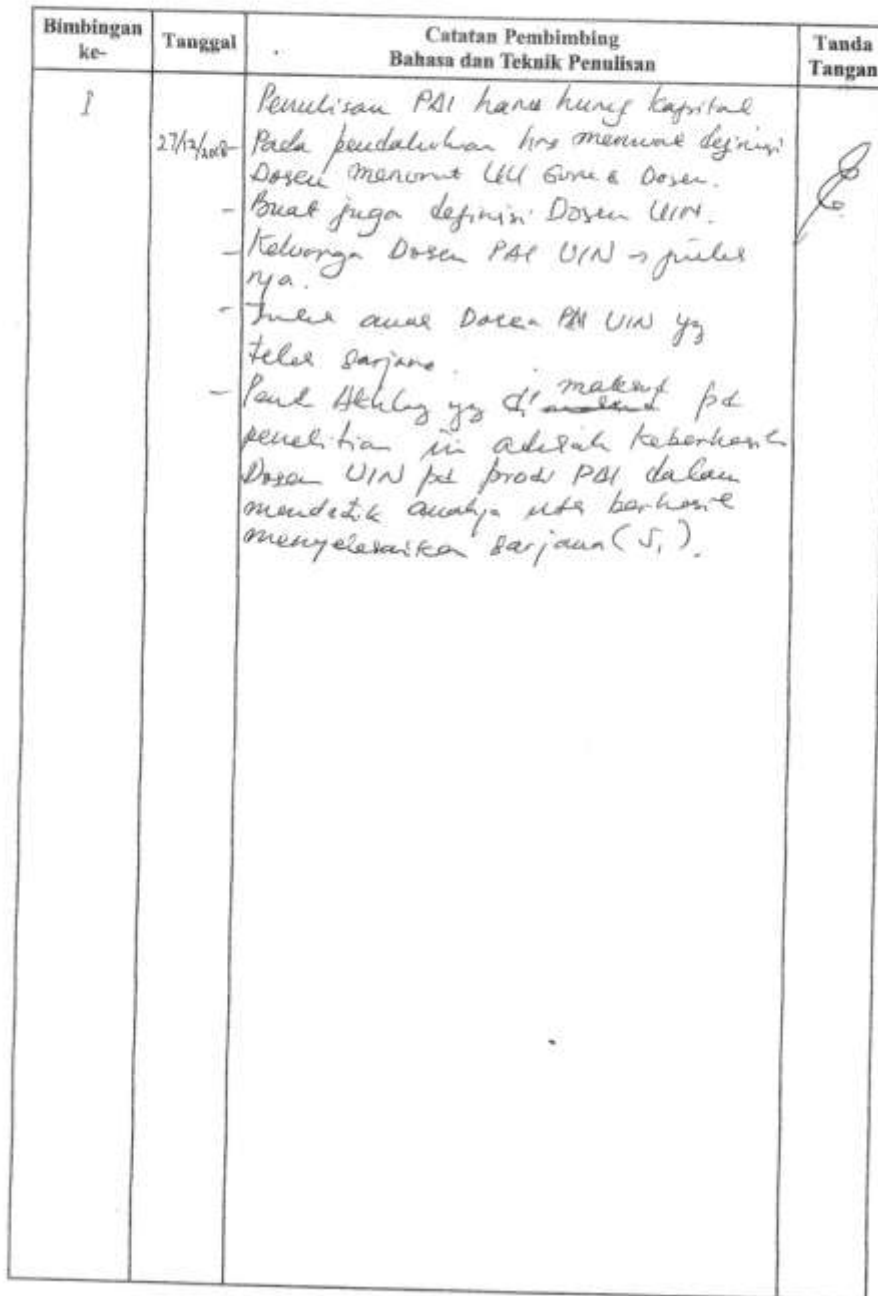 Bimbingan ke-
Tanggal
Catatan Pembimbing
Bahasa dan Teknik Penulisan
Tanda Tangan
I
Penulisan PAI harus huruf kapital
27/12/2018
Pada pendahuluan hrs memuat definisi
Dosen menurut UU Guru & Dosen.
- Buat juga definisi Dosen UIN.
- Keluarga Dosen PAI UIN →
nya.
- anak Dosen PAI UIN yg
telah sarjana.
- Pend Akhlaq yg di maksud pd
penelitian ini adalah keberhasilan
Dosen UIN pd prodi PAI dalam
mendidik anaknya berhasil
menyelesaikan sarjana (S1).